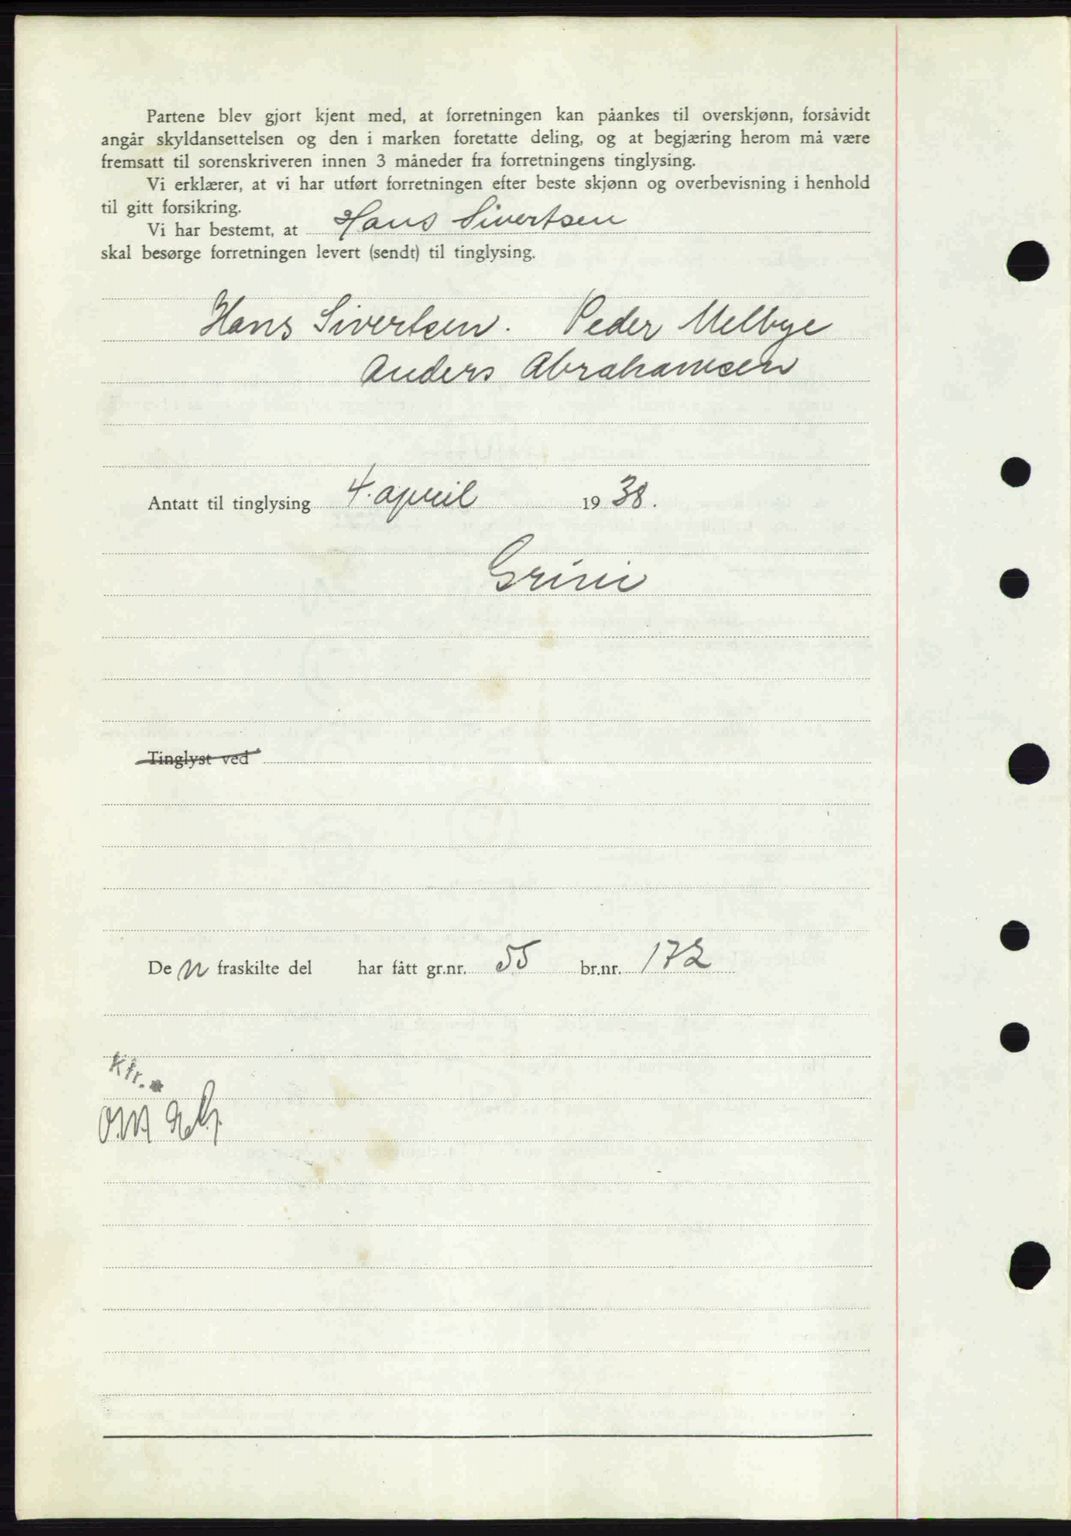 Partene blev gjort kjent med, at forretningen kan påankes til overskjønn, forsåvidt
angår skyldansettelsen og den i marken foretatte deling, og at begjæring herom må være
fremsatt til sorenskriveren innen 3 måneder fra forretningens tinglysing.
Vi erklærer, at vi har utført forretningen efter beste skjønn og overbevisning i henhold
til gitt forsikring.
Vi har bestemt, at Hans Sivertsen
skal besørge forretningen levert (sendt) til tinglysing.
Hans Sivertsen. Peder Melbye
Anders Abrahamsen
Antatt til tinglysing 4. april 1938.
Grini
Tinglyst ved
De n fraskilte del har fått gr.nr. 55 br.nr. 172
Kfr.